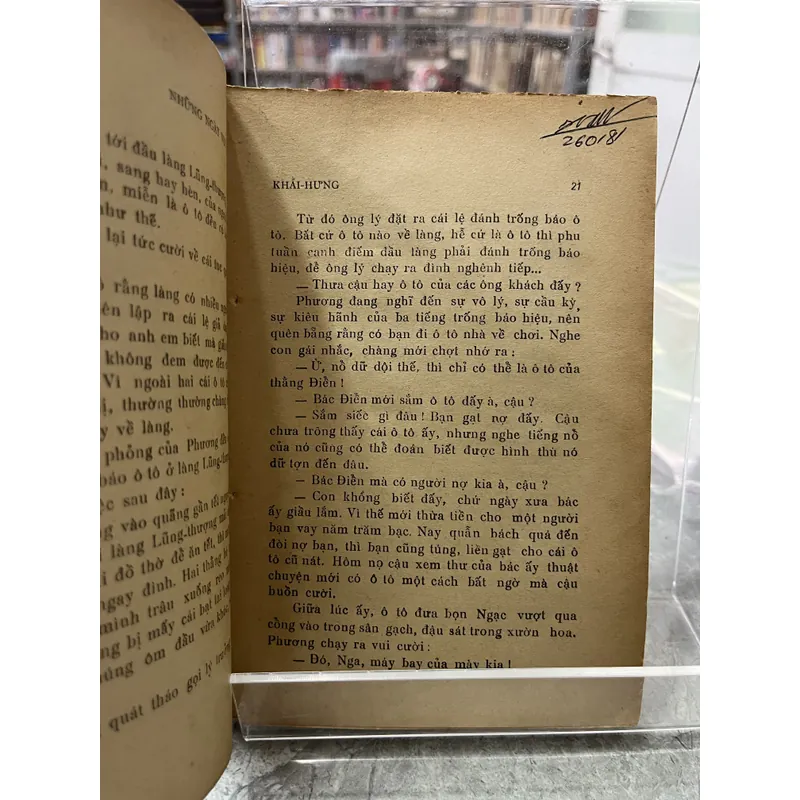 NHỮNG NGÀY
tới đầu làng Lũng-thượng
sang hay hèn, của
miễn là ô tô đều
như thế.
lại tức cười về cái tục
rằng làng có nhiều
lập ra cái lệ giả
cho anh em biết mà
không đem được đến
Vì ngoài hai cái ô tô
thường thường chàng
về làng.
phỏng của Phương
báo ô tô ở làng Lũng-thượng
sau đây :
vào quãng gần tết
làng Lũng-thượng
đồ thờ để ăn tết, thì
ngay đình. Hai thằng
mình trâu xuống
bị mấy cái bạt tai
ôm đầu vừa
quát tháo gọi lý trưởng
260181
KHÁI-HƯNG 21
Từ đó ông lý đặt ra cái lệ đánh trống báo ô
tô. Bất cứ ô tô nào về làng, hễ cứ là ô tô thì phu
tuần canh điếm đầu làng phải đánh trống báo
hiệu, để ông lý chạy ra đình nghênh tiếp...
— Thưa cậu hay ô tô của các ông khách đấy ?
Phương đang nghĩ đến sự vô lý, sự cầu kỳ,
sự kiêu hãnh của ba tiếng trống báo hiệu, nên
quên bẵng rằng có bạn đi ô tô nhà về chơi. Nghe
con gái nhắc, chàng mới chợt nhớ ra :
— Ử, nổ dữ dội thế, thì chỉ có thể là ô tô của
thằng Điền !
— Bác Điền mới sắm ô tô đấy à, cậu ?
— Sắm siếc gì đâu ! Bạn gạt nợ đấy. Cậu
chưa trông thấy cái ô tô ấy, nhưng nghe tiếng nổ
của nó cũng có thể đoán biết được hình thù nó
dữ tợn đến đâu.
— Bác Điền mà có người nợ kia à, cậu ?
— Con không biết đấy, chứ ngày xưa bác
ấy giầu lắm. Vì thế mới thừa tiền cho một người
bạn vay năm trăm bạc. Nay quẫn bách quá đến
đòi nợ bạn, thì bạn cũng túng, liền gạt cho cái ô
tô cũ nát. Hôm nọ cậu xem thư của bác ấy thuật
chuyện mới có ô tô một cách bất ngờ mà cậu
buồn cười.
Giữa lúc ấy, ô tô đưa bọn Ngạc vượt qua
cổng vào trong sân gạch, đậu sát trong xườn hoa.
Phương chạy ra vui cười :
— Đó, Nga, máy bay của mày kia !